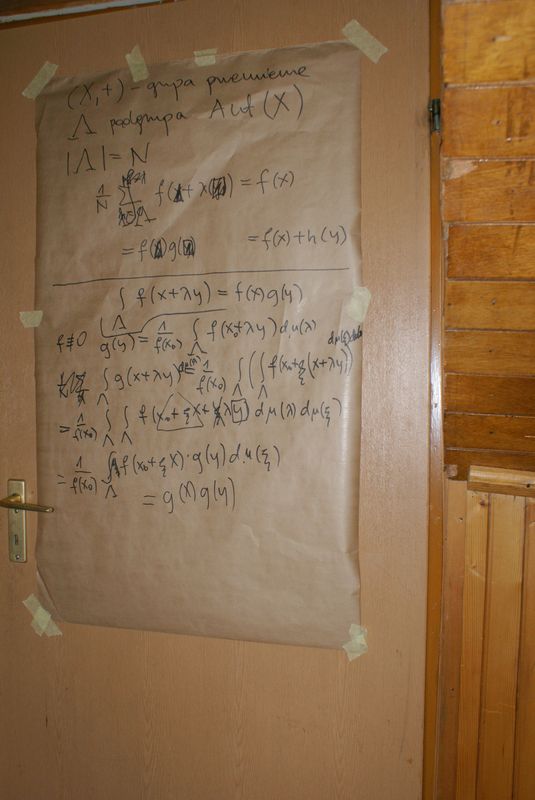 (X,+) - grupa przemienne
Λ podgrupa Aut(X)
|Λ| = N
1/N ∑ f(x + λ(y)) = f(x)
= f(x) g(y) = f(x) + h(y)
∫_Λ f(x+λy) = f(x) g(y)
f≢0 g(y) = 1/f(x₀) ∫_Λ f(x₀+λy) dμ(λ)
∫_Λ g(x+λy) dμ(λ) = 1/f(x₀) ∫_Λ (∫_Λ f(x₀+ξ(x+λy)) dμ(ξ)
= 1/f(x₀) ∫_Λ ∫_Λ f(x₀+ξx+λy) dμ(λ) dμ(ξ)
= 1/f(x₀) ∫_Λ f(x₀+ξx)·g(y) dμ(ξ)
= g(x) g(y)